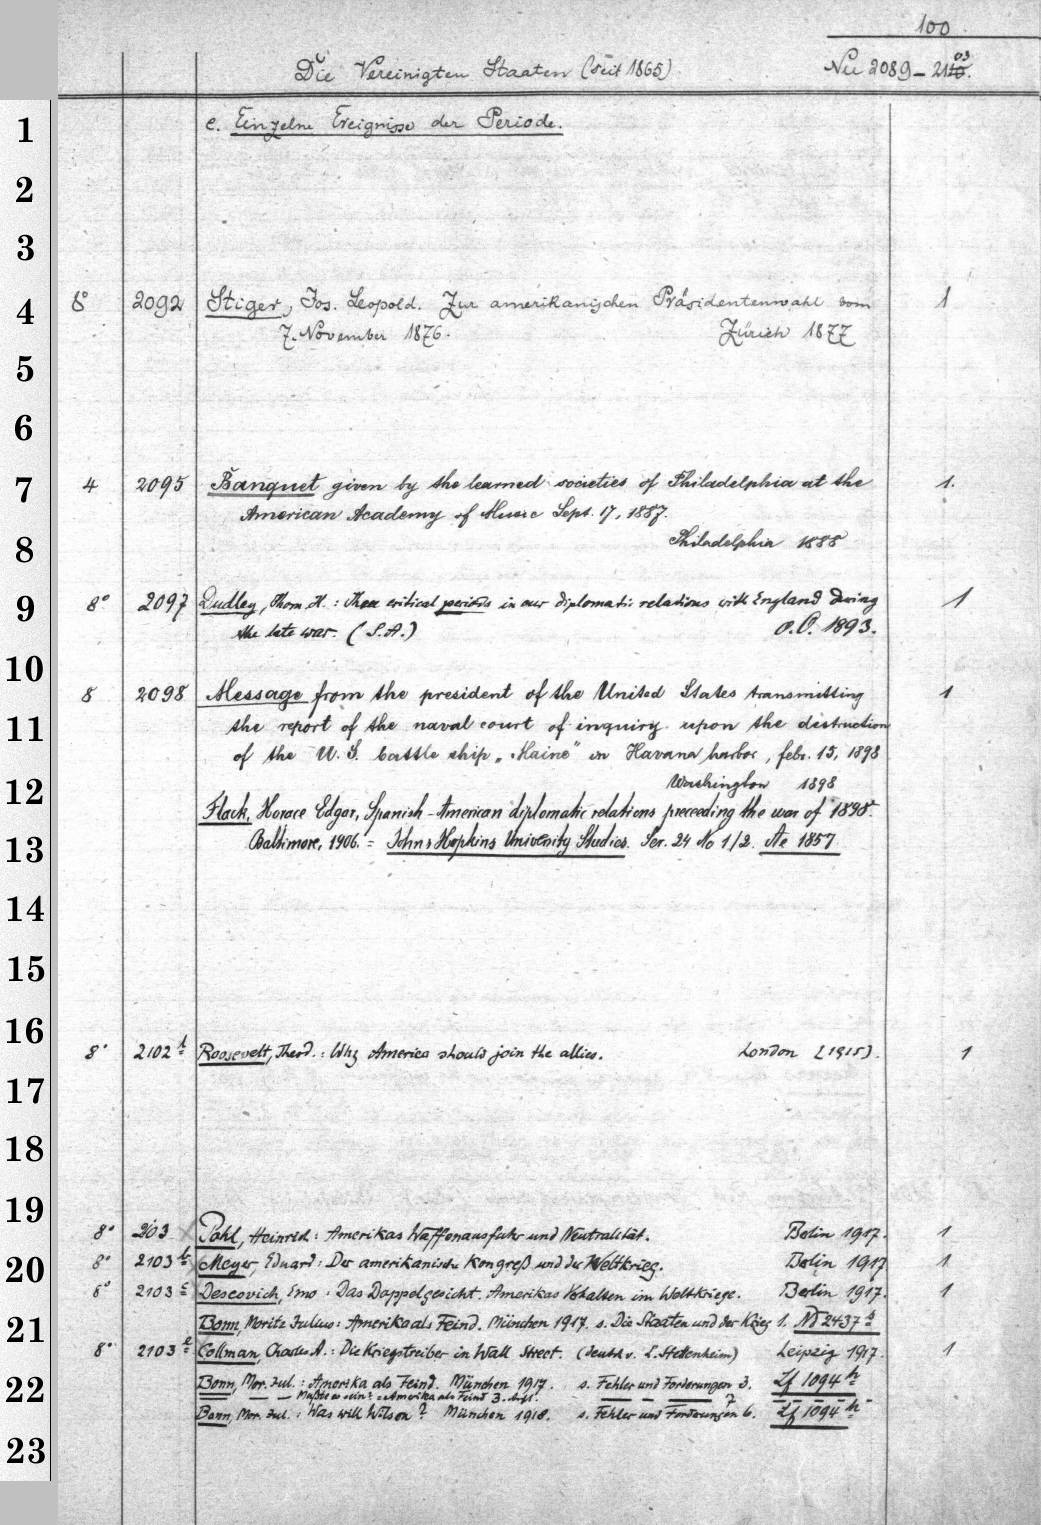 100
Die Vereinigten Staaten (seit 1865)
Nu 2089 – 2110. 03
1
e. Einzelne Ereignisse der Periode.
2
3
4
8° 2092 Stiger, Jos. Leopold. Zur amerikanischen Präsidentenwahl vom 1
7. November 1876. Zürich 1877
5
6
7
4 2095 Banquet given by the learned societies of Philadelphia at the 1.
American Academy of Music Sept. 17, 1887.
8
Philadelphia 1888
9
8° 2097 Dudley, Thom. H.: Three critical periods in our diplomatic relations with England during 1
the late war. (S.A.) o.O. 1893.
10
8 2098 Message from the president of the United States transmitting 1
11
the report of the naval court of inquiry upon the distruction
of the U.S. battle ship „Maine" in Havana harbor, febr. 15, 1898
12
Washington 1898
Flack, Horace Edgar, Spanish-American diplomatic relations preceeding the war of 1898.
13
Baltimore, 1906. = Johns Hopkins University Studies. Ser. 24 No 1/2. Ae 1857
14
15
16
8° 2102 b Roosevelt, Theod.: Why America should join the allies. London [1915]. 1
17
18
19
8° 2103 Pohl, Heinrich: Amerikas Waffenausfuhr und Neutralität. Berlin 1917. 1
20
8° 2103 b Meyer, Eduard: Der amerikanische Kongreß und der Weltkrieg. Berlin 1917 1
8° 2103 c Descovich, Emo: Das Doppelgesicht. Amerikas Verhalten im Weltkriege. Berlin 1917. 1
21
Bonn, Moritz Julius: Amerika als Feind. München 1917. s. Die Staaten und der Krieg 1. 2437
8° 2103 e Collman, Charles A.: Die Kriegstreiber in Wall Street. (deutsch v. L. Stettenheim) Leipzig 1917. 1
22
Bonn, Mor. Jul.: Amerika als Feind. München 1917. s. Fehler und Forderungen 3. Zf 1094 h
— — Mußte es sein? = Amerika als Feind 3. Aufl. — — — 7 — —
Bonn, Mor. Jul.: Was will Wilson? München 1918. s. Fehler und Forderungen 6. Zf 1094 h
23